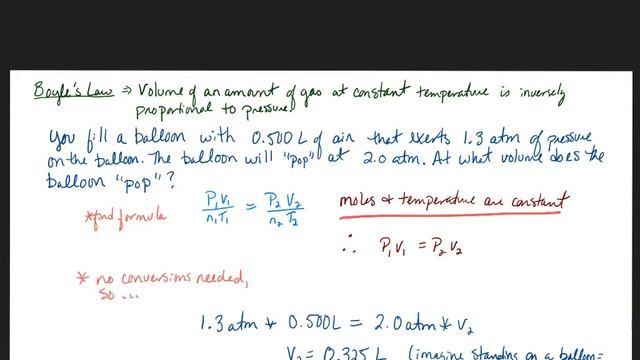 Boyle's Law ⇒ Volume of an amount of gas at constant temperature is inversely
proportional to pressure.
You fill a balloon with 0.500 L of air that exerts 1.3 atm of pressure
on the balloon. The balloon will "pop" at 2.0 atm. At what volume does the
balloon "pop"?
*find formula
P₁V₁/n₁T₁ = P₂V₂/n₂T₂
moles & temperature are constant
∴ P₁V₁ = P₂V₂
* no conversions needed,
so ...
1.3 atm * 0.500L = 2.0 atm * V₂
V₂ = 0.325 L (imagine standing on a balloon=